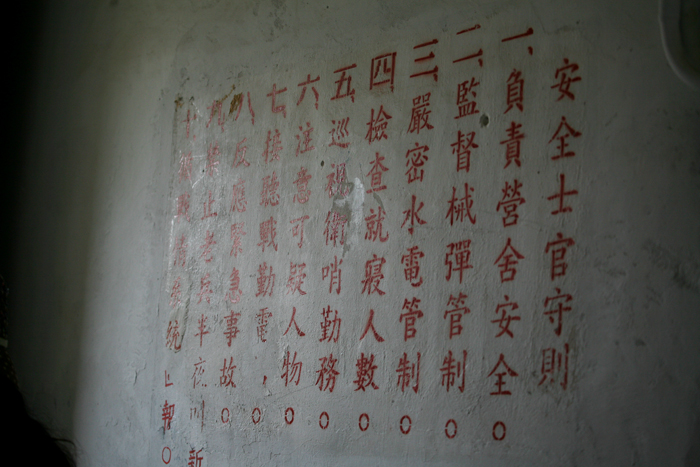 安全士官守則
一、負責營舍安全。
二、監督械彈管制。
三、嚴密水電管制。
四、檢查就寢人數。
五、巡視衛哨勤務。
六、注意可疑人物。
七、接聽戰勤電,。
八、反應緊急事故。
九、止老兵半夜叫新
統上報。